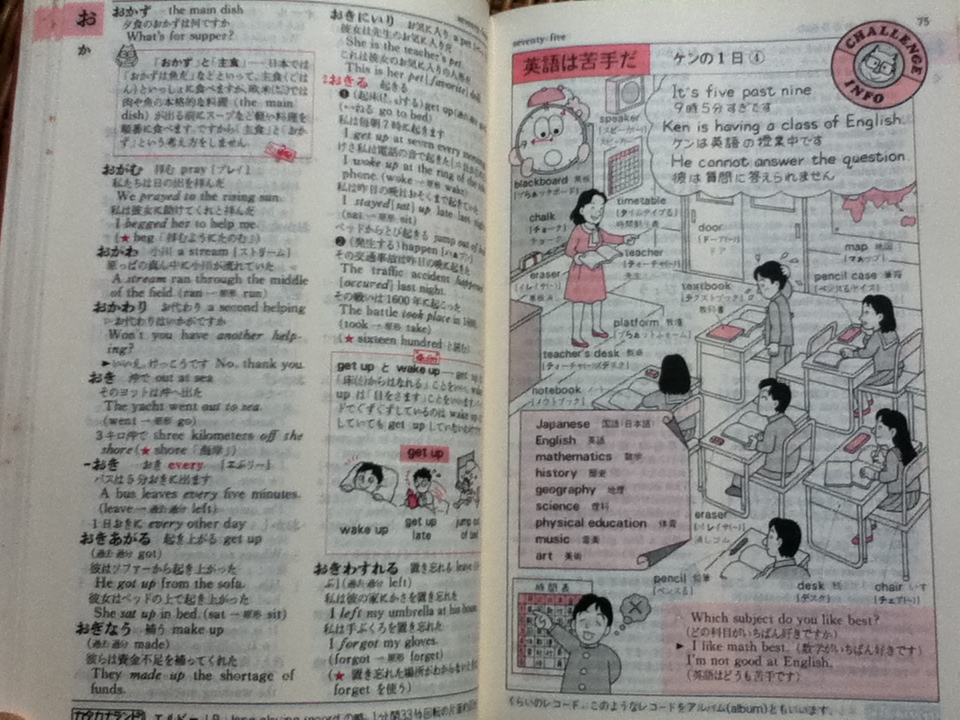 お
か
おかず the main dish
夕食のおかずは何ですか
What's for supper?
「おかず」と「主食」—日本では
「おかずは魚だ」などといって、主食(ごは
ん)といっしょに食べますが、欧米では
肉や魚の本格的な料理 (the main
dish) が出る前にスープなど軽い料理を
順番に食べます。ですから「主食」と「おか
ず」という考え方をしません。
おがむ 拝む pray [プレイ]
私たちは日の出を拝んだ
We prayed to the rising sun.
私は彼女に助けてくれと拝んだ
I begged her to help me.
(★ beg「拝むようにたのむ」)
おがわ 小川 a stream [ストリーム]
原っぱの真ん中に小川が流れていた
A stream ran through the middle
of the field. (ran → 原形 run)
おかわり お代わり a second helping
▷お代わりはいかがですか
Won't you have another help-
ing?
►いいえ、けっこうです No, thank you.
おき 沖で out at sea
そのヨットは沖へ出た
The yacht went out to sea.
(went → 原形 go)
3キロ沖で three kilometers off the
shore (★ shore「海岸」)
-おき おき every [エヴリー]
バスは5分おきに出ます
A bus leaves every five minutes.
(leave → 過去・過分 left)
1日おきに every other day
おきあがる 起き上がる get up
(過去・過分 got)
彼はソファーから起き上がった
He got up from the sofa.
彼女はベッドの上で起き上がった
She sat up in bed. (sat → 原形 sit)
おぎなう 補う make up
(過去・過分 made)
彼らは資金不足を補ってくれた
They made up the shortage of
funds.
おきにいり お気に入り a pet
彼女は先生のお気に入りだ
She is the teacher's pet.
これは彼女のお気に入りの人形だ
This is her pet [favorite] doll.
おきる 起きる
❶ get up
(↔ねる go to bed)
私は毎朝7時に起きます
I get up at seven every morning.
けさ私は電話の音で起きた
I woke up at the ring of the
phone. (woke → 原形 wake)
私は昨日の晩はおそくまで起きていた
I stayed [sat] up late last night.
(sat → 原形 sit)
ベッドからとび起きる jump out of
❷ (発生する) happen [ハプン]
その交通事故は昨日の晩に起きた
The traffic accident happened
[occured] last night.
その戦いは1600年に起こった
The battle took place in 1600.
(took → 原形 take)
(★ sixteen hundred と読む)
get up と wake up
get up
wake up
get up
late
jump out
of bed
おきわすれる 置き忘れる leave
(過去・過分 left)
私は彼の家にかさを置き忘れた
I left my umbrella at his house.
私は手ぶくろを置き忘れた
I forgot my gloves.
(forgot → 原形 forget)
(★ 置き忘れた場所がわからないとき
forget を使う)
カタカナランド
75
seventy-five
英語は苦手だ ケンの1日④
CHALLENGE
INFO
It's five past nine
9時5分すぎです
Ken is having a class of English.
ケンは英語の授業中です
He cannot answer the question
彼は質問に答えられません
speaker
[スピーカー]
スピーカー
blackboard 黒板
[ブらぁックボード]
timetable
[タイムテイブる]
時間割り表
chalk
[チョーク]
チョーク
teacher
[ティーチャー]
先生
door
[ドーァ]
ドア
map 地図
[マぁップ]
eraser
[イレイサ]
黒板消し
textbook
[テクストブック]
教科書
pencil case 筆箱
[ペンスるケイス]
platform 教壇
[プらぁットふォーム]
teacher's desk 教卓
[ティーチャーズデスク]
notebook
[ノウトブック]
Japanese 国語(日本語)
English 英語
mathematics 数学
history 歴史
geography 地理
science 理科
physical education 体育
music 音楽
art 美術
eraser
[イレイサ]
消しゴム
pencil 鉛筆
[ペンスる]
desk 机
[デスク]
chair いす
[チェア]
時間表
Which subject do you like best?
(どの科目がいちばん好きですか)
► I like math best. (数学がいちばん好きです)
I'm not good at English.
(英語はどうも苦手です)
くらいのレコード。このようなレコードをアルバム(album)ともいいます。